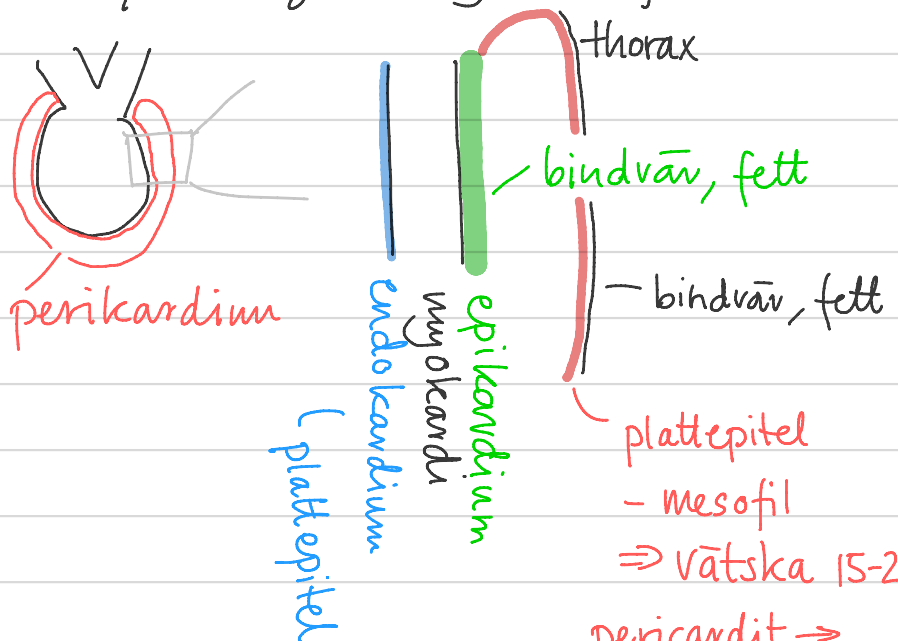 thorax
bindväv, fett
perikardium
bindväv, fett
endokardium
myokardi
epikardium
(plattepitel
plattepitel
- mesofil
⇒ vätska 15-2
pericardit →